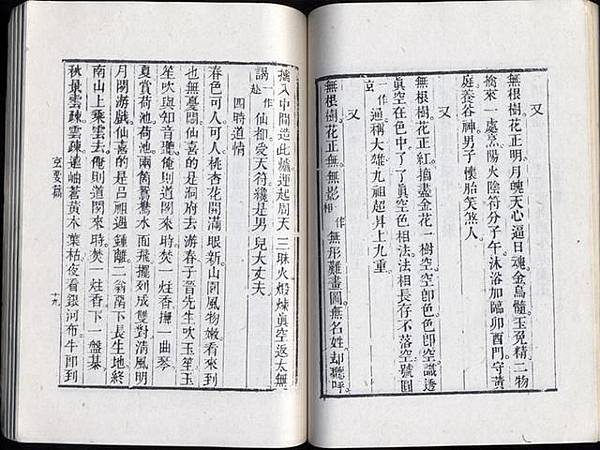 又
無根樹花正明月魄天心逼日魂金烏髓玉兔精二物
擒來一處烹陽火陰符分子午沐浴加臨卯酉門守黃
庭養谷神男子懷胎笑煞人
又
無根樹花正紅摘盡金花一樹空空卽色色卽空識透
眞空在色中了了眞空色相法法相長存不落空號圓
一作京 通稱大雄九祖超昇上九重
又
無根樹花正無無影一作相無形難畫圖無名姓却聽呼
擒入中間造此爐運起周天三昧火煅煉眞空返太無
謁一作赴仙都受天符纔是男兒大丈夫
四時道情
春色可人可人桃杏花開滿眼新山園風物嫩看來
也無憂悶仙喜的是洞府去游春子晉先生吹玉笙玉
笙吹與知音聽俺則道閒來時焚一炷香撫一曲琴
夏賞荷池荷池兩個鴛鴦水面飛擺列成雙對清風明
月閒游戲仙喜的是呂祖遇鍾離二翁留下長生地終
南山上乘雲去俺則道閒來時焚一炷香下一盤棊
秋景雲疎雲疎遠岫蒼黃木葉枯夜看銀河布牛郎到
玄要篇
十九